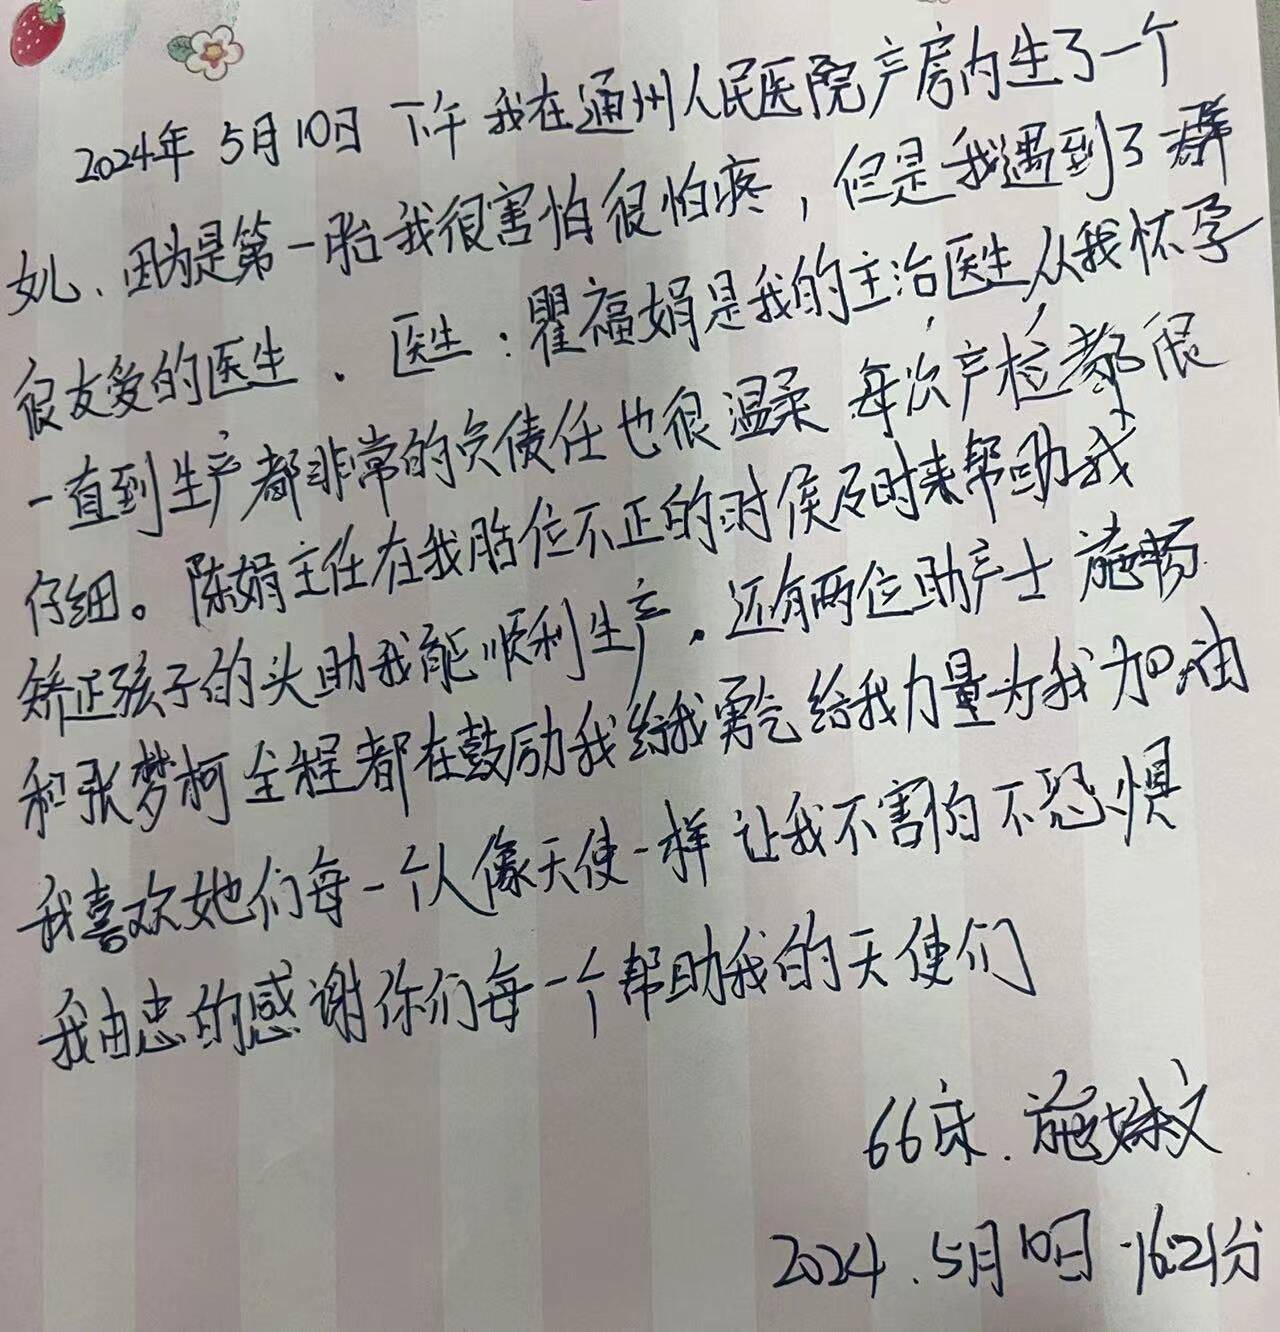 2024年 5月10日 下午 我在通州人民医院产房内生了一个
女儿、因为是第一胎我很害怕很怕疼，但是我遇到了一群
很友爱的医生．医生：瞿福娟是我的主治医生，从我怀孕
一直到生产都非常的负责任也很温柔 每次产检都很
仔细。陈娟主任在我胎位不正的时侯及时来帮助我
矫正孩子的头助我能顺利生产．还有两位助产士 施畅
和张梦柯全程都在鼓励我给我勇气给我力量为我加油
我喜欢她们每一个人像天使一样 让我不害怕 不恐惧
我由忠的感谢你们每一个帮助我的天使们
66床．施姝文
2024．5月10日 16:21分